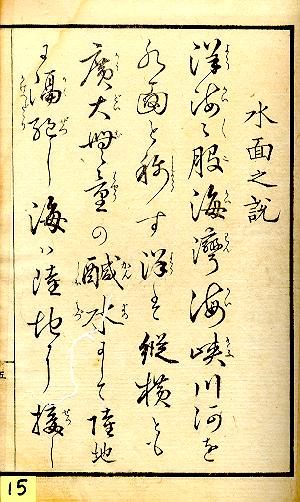 水面之説
洋海海股海灣海峽川河を
水面と稱す洋は縱横とも
廣大無量の鹹水にして陸地
を隔絶し海ハ陸地に接し
五
15